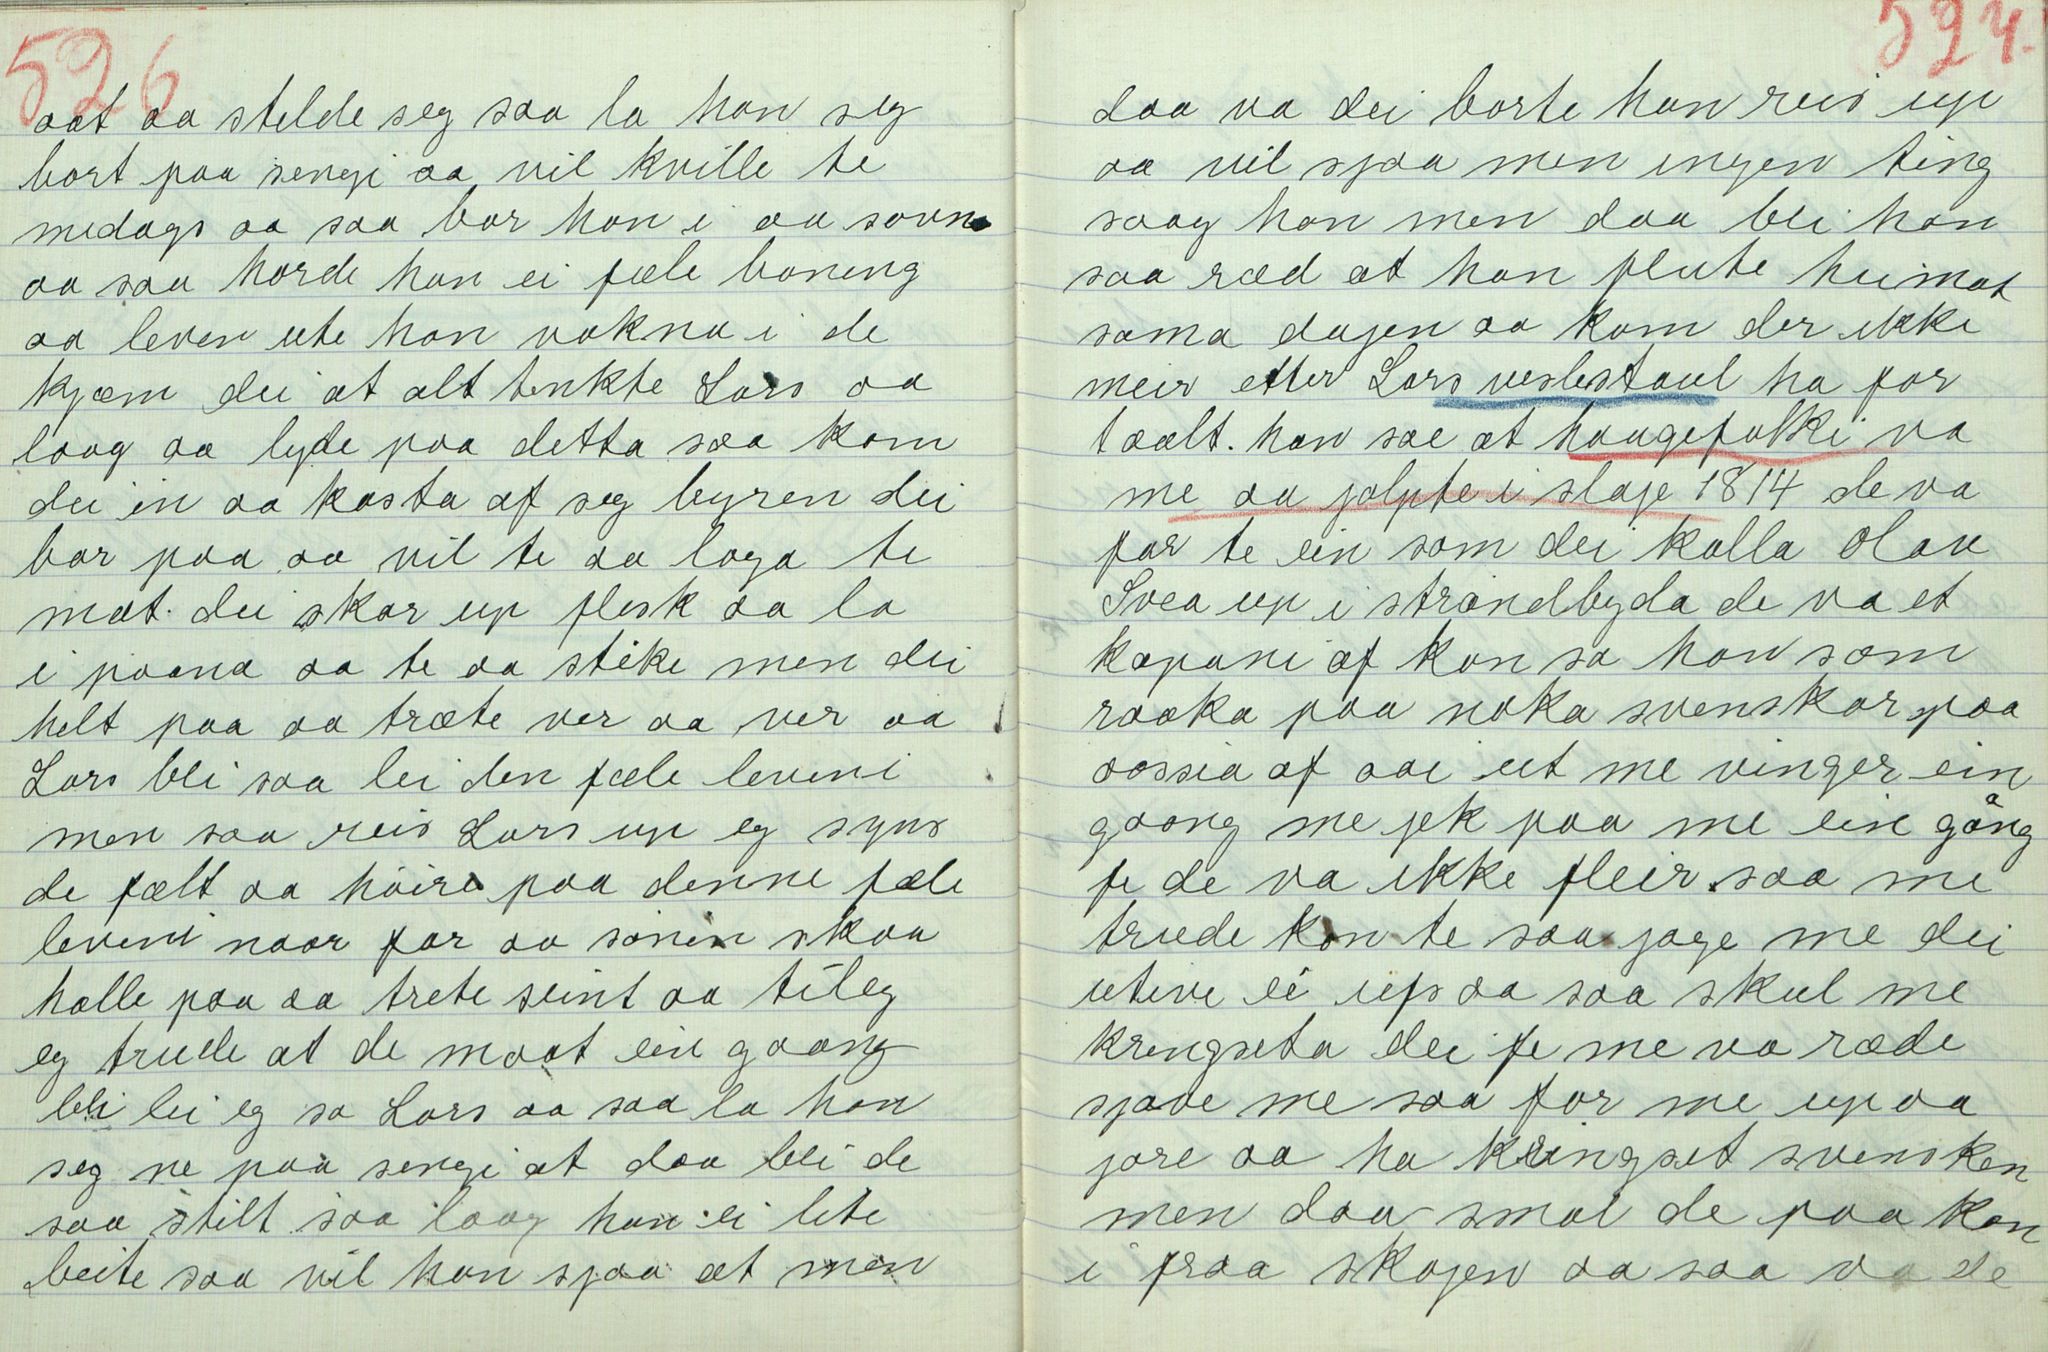 526
aat aa stelde seg saa la han seg
bort paa sengi aa vil kville te
medags aa saa bar han i aa sovne
aa saa horde han ei fæle boneng
aa leven ute han vakna i de
kjæm dei at alt tenkte Lars aa
laag aa lyde paa detta saa kom
dei in aa kasta af seg byren dei
bar paa aa vil te aa laga te
mat. dei skar up flesk aa la
i paana aa te aa steke men dei
helt paa aa træte ver aa ver aa
Lars blei saa lei den fæle leveni
men saa reis Lars up eg syns
de fælt aa höire paa denne fæle
leveni naar far aa sönen skaa
halle paa aa trete seint aa tileg
eg trude at de maat ein gaang
bli lei eg sa Lars aa saa la han
seg ne paa sengi at daa blei de
saa stilt saa laag han ei lite
beite saa vil han sjaa æt men
527.
daa va dei borte han reis up
aa vil sjaa men ingen ting
saag han men daa blei han
saa ræd at han flute heimat
sama dagen aa kom der ikke
meir etter Lars veslestaul ha for
taalt. han sae at haugefolki va
me aa jalpte i slaje 1814 de va
far te ein som dei kalla Olau
Svea up i strandbyda de va et
kapani af kon sa han som
raaka paa noka svenskar paa
aassia af aai ut me vinger ein
gaang me jek paa me ein gång
fe de va ikke fleir. saa me
trude kon te saa jage me dei
utive ei ups aa saa skul me
kringseta dei fe me va ræde
sjøve me saa for me up aa
jore aa ha kringset svensken
men daa smal de paa kon
i fraa skogen aa saa va de